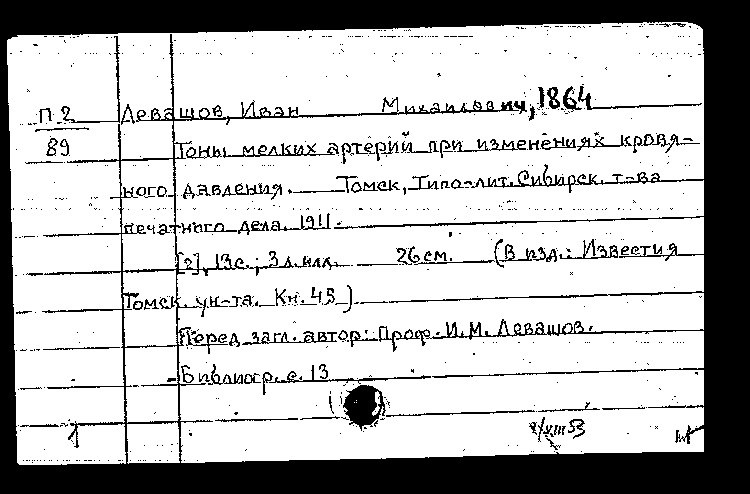 П 2 Левашов, Иван Михаилович, 1864
89 Тоны мелких артерий при изменениях кровя-
ного давления. Томск, Типо-лит. Сибирск. т-ва
печатного дела. 1911.
[2], 13 с.; 3 л. илл. 26 см. (В изд.: Известия
Томск. ун-та. Кн. 45)
Перед загл. автор: Проф. И. М. Левашов.
Библиогр. с. 13
1 VIII 53